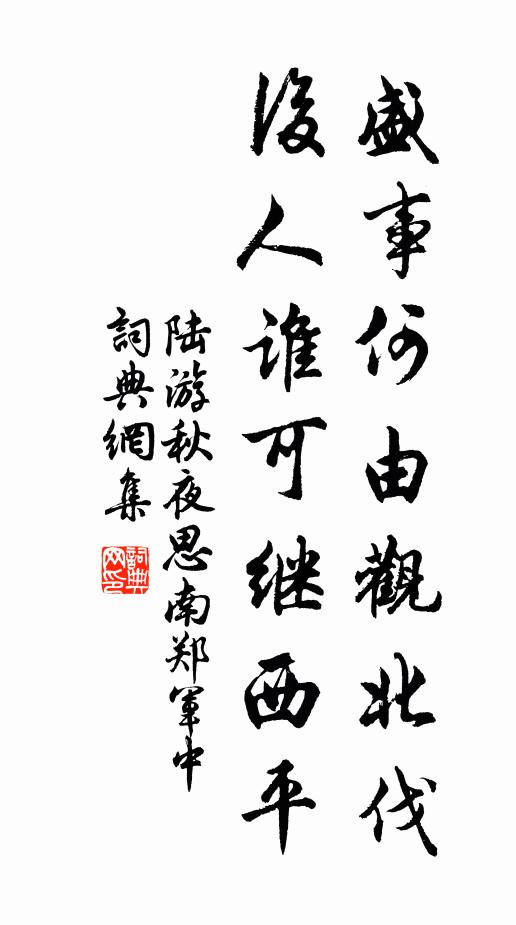 盛事何由觀北伐
後人谁可继西平
陆游秋夜思南郑軍中
詞典網集
詞典网印